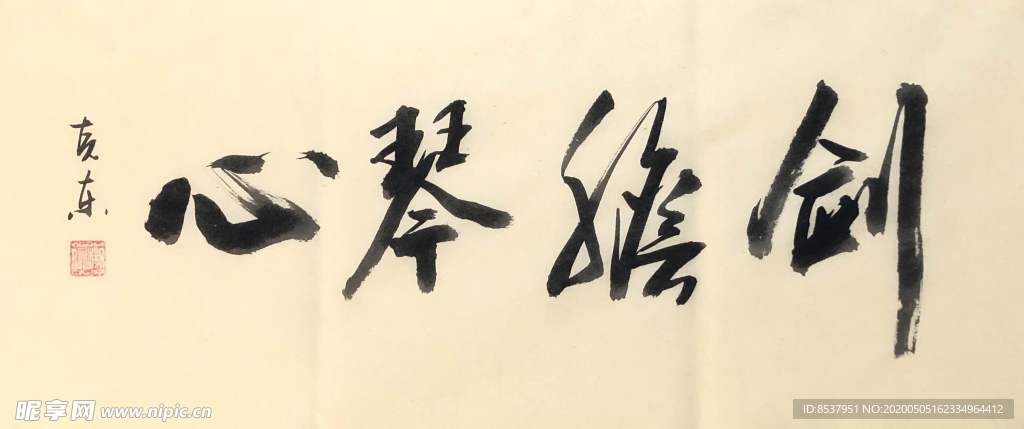 剑胆琴心
克东
昵享网 www.nipic.cn
ID:8537951 NO:20200505162334964412